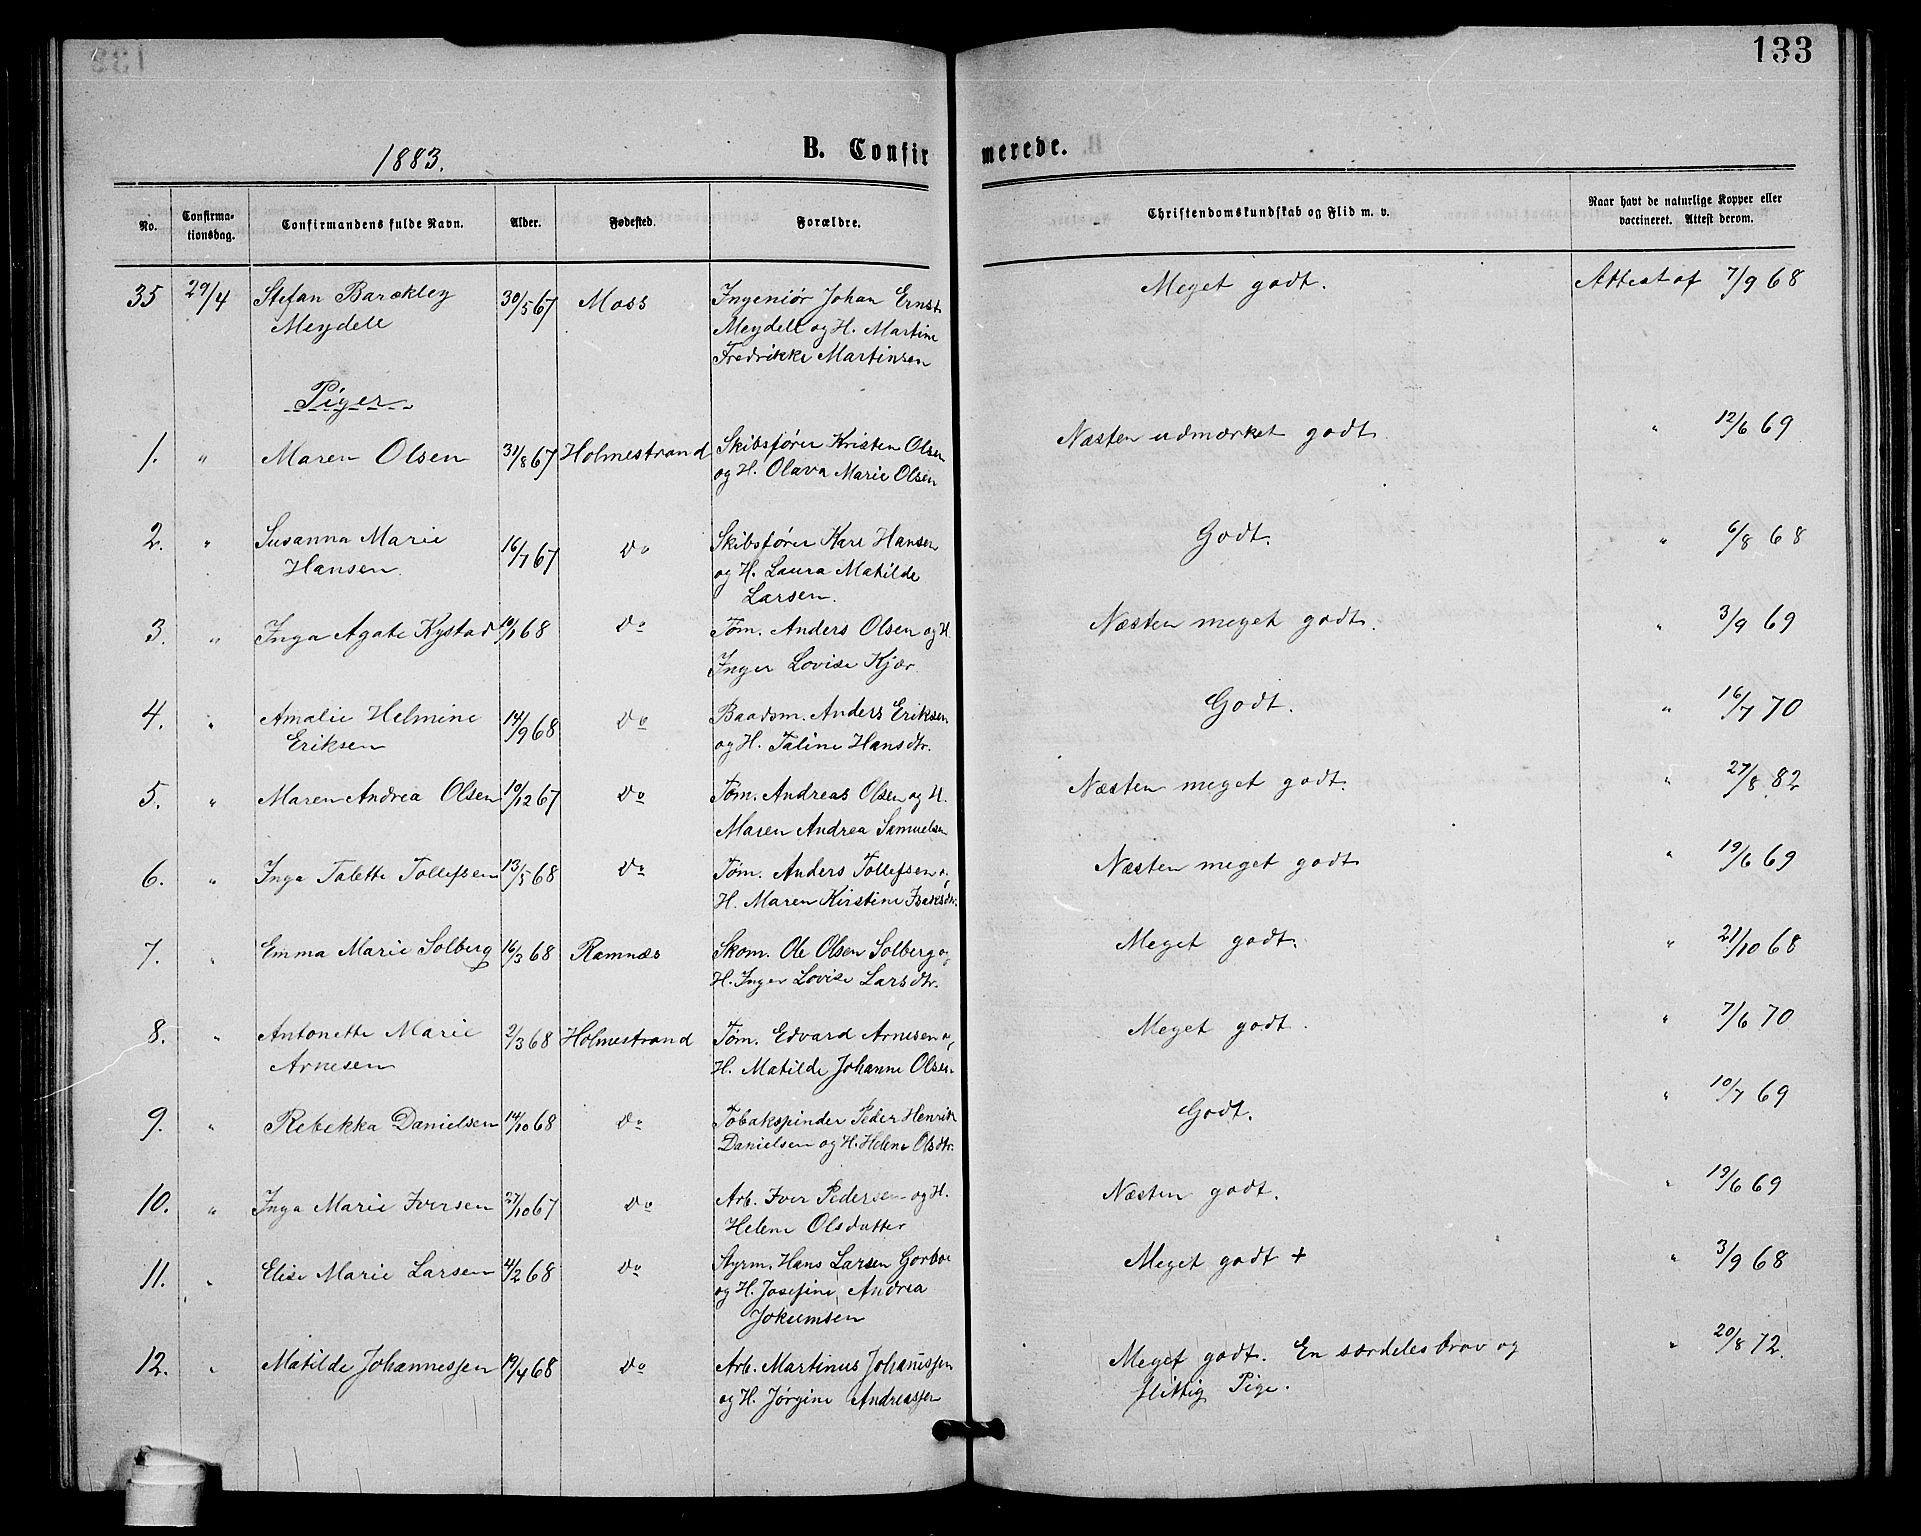 133
1883.
B. Confirmerede.
No.
Confirma-
tionsdag.
Confirmandens fulde Navn.
Alder.
Fødested.
Forældre.
Christendomskundskab og Flid m. v.
Naar havt de naturlige Kopper eller
vaccineret. Attest derom.
35 29/4 Stefan Barekley 30/5 67 Moss Ingeniør Johan Ernst Meget godt. Attest af 7/9 68
Meydell Meydell og H. Martine
Fredrikke Martinsen
Piger
1. " Maren Olsen 31/8 67 Holmestrand Skibsfører Kristen Olsen Næsten udmærket godt. " 12/6 69
og H. Olava Marie Olsen
2. " Susanna Marie 16/7 67 do Skibsfører Karl Hansen Godt. " 6/8 68
Hansen. og H. Laura Matilde
Larsen.
3. " Inga Agate Kystad 10/1 68 do Tøm. Anders Olsen og H. Næsten meget godt. " 3/9 69
Inger Lovise Kjær.
4. " Amalie Helmine 14/9 68 do Baadsm. Anders Eriksen Godt. " 16/7 70
Eriksen og H. Taline Hansdtr.
5. " Maren Andrea Olsen 10/12 67 do Tøm. Andreas Olsen og H. Næsten meget godt. " 27/8 82
Maren Andrea Samuelsen
6. " Inga Talette Tollefsen 13/5 68 do Tøm. Anders Tollefsen og Næsten meget godt " 19/6 69
H. Maren Kirstine Isaksdtr.
7. " Emma Marie Solberg 16/3 68 Ramnæs Skom. Ole Olsen Solberg og Meget godt. " 21/10 68
H. Inger Lovise Larsdtr.
8. " Antonette Marie 2/3 68 Holmestrand Tøm. Edvard Arnesen og Meget godt. " 7/6 70
Arnesen H. Matilde Johanne Olsen
9. " Rebekka Danielsen 14/10 68 do Tobakspinder Peder Henrik Godt. " 10/7 69
Danielsen og H. Helene Olsdtr.
10. " Inga Marie Iversen 27/10 67 do Arb. Iver Pedersen og H. Næsten godt. " 19/6 69
Helene Olsdatter
11. " Elise Marie Larsen 4/2 68 do Styrm. Hans Larsen Gorboe Meget godt + " 3/9 68
og H. Josefine Andrea
Jokumsen
12. " Matilde Johannessen 19/4 68 do Arb. Martinus Johanessen Meget godt. En særdeles brav og " 20/8 72.
og H. Jørgine Andreassen flittig Pige.